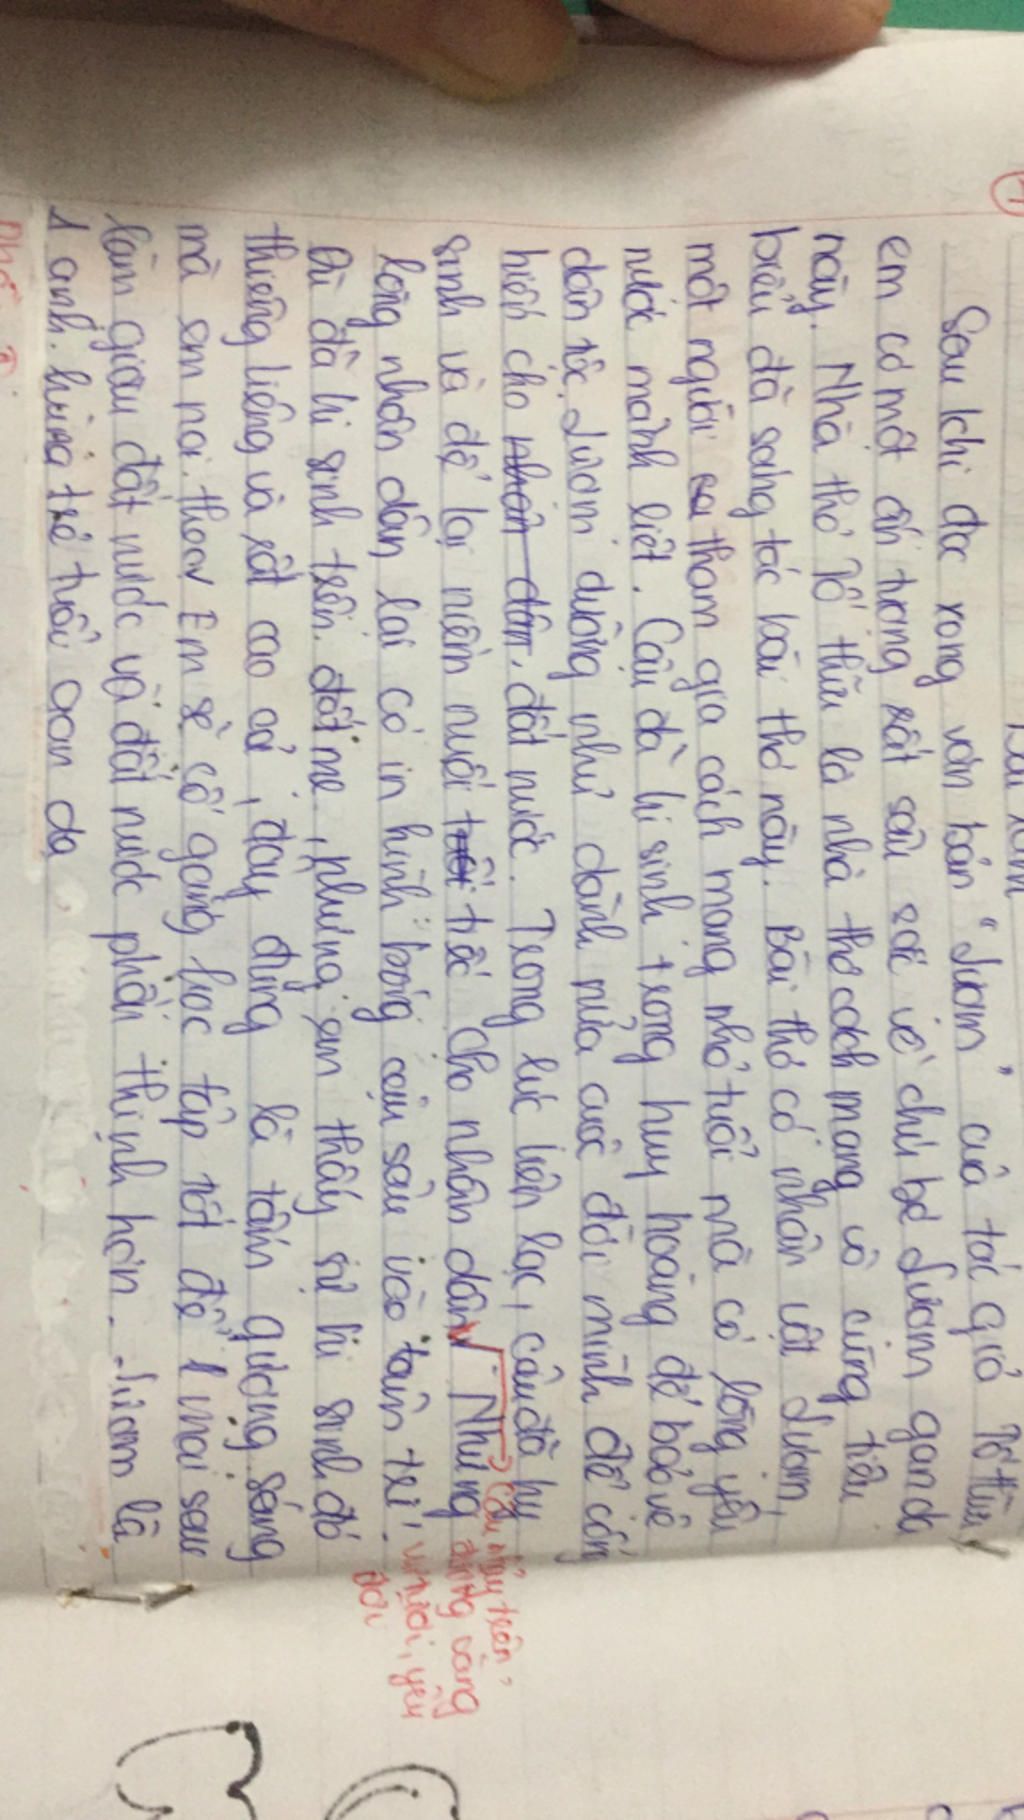 Sau khi đọc xong văn bản "Lượm" của tác giả Tố Hữu
em có một ấn tượng rất sâu sắc về chú bé Lượm gan dạ
này. Nhà thơ Tố Hữu là nhà thơ cách mạng vô cùng tiêu
biểu đã sáng tác bài thơ này. Bài thơ có nhân vật Lượm,
một người tham gia cách mạng nhỏ tuổi mà có lòng yêu
nước mảnh liệt. Cậu đã hi sinh trong huy hoàng để bảo vệ
dân tộc. Lượm dường như dành nửa cuộc đời mình để cống
hiến cho nhân dân, đất nước. Trong lúc liên lạc, cậu đã hy
sinh và để lại niềm nuối tiếc cho nhân dân. Nhưng
lòng nhân dân lại có in hình bóng cậu sâu vào tâm trí.
Dù đã hi sinh trên đất mẹ, nhưng em thấy sự hi sinh đó
thiêng liêng và rất cao cả, đây đúng là tấm gương sáng
mà em noi theo. Em sẽ cố gắng học tập tốt để mai sau
làm giàu đất nước và đất nước phồn thịnh hơn. Lượm là
1 anh hùng trẻ tuổi gan dạ
cậu nhảy trên,
đường vàng
yêu
đời